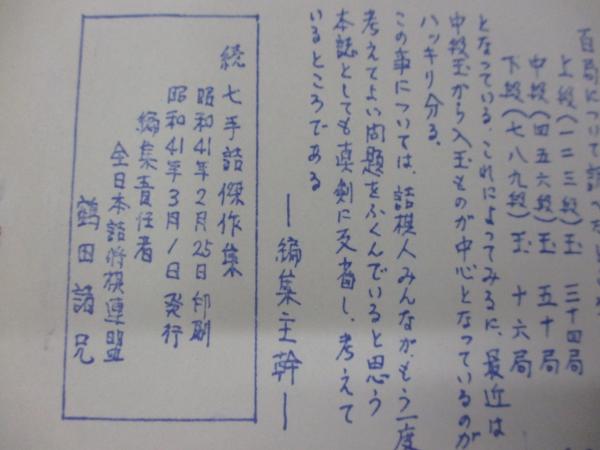 百局について調べたところ
上段(一二三段)玉 三十四局
中段(四五六段)玉 五十局
下段(七八九段)玉 十六局
となっている。これによってみるに、最近は
中段玉から入玉ものが中心となっているのが
ハッキリ分る。
この事については、詰棋人みんながもう一度
考えてよい問題をふくんでいると思う
本誌としても真剣に反省し、考えて
いるところである
―編集主幹―
続 七手詰傑作集
昭和41年2月25日 印刷
昭和41年3月1日 発行
編集責任者
全日本詰将棋連盟
鶴田諸兄